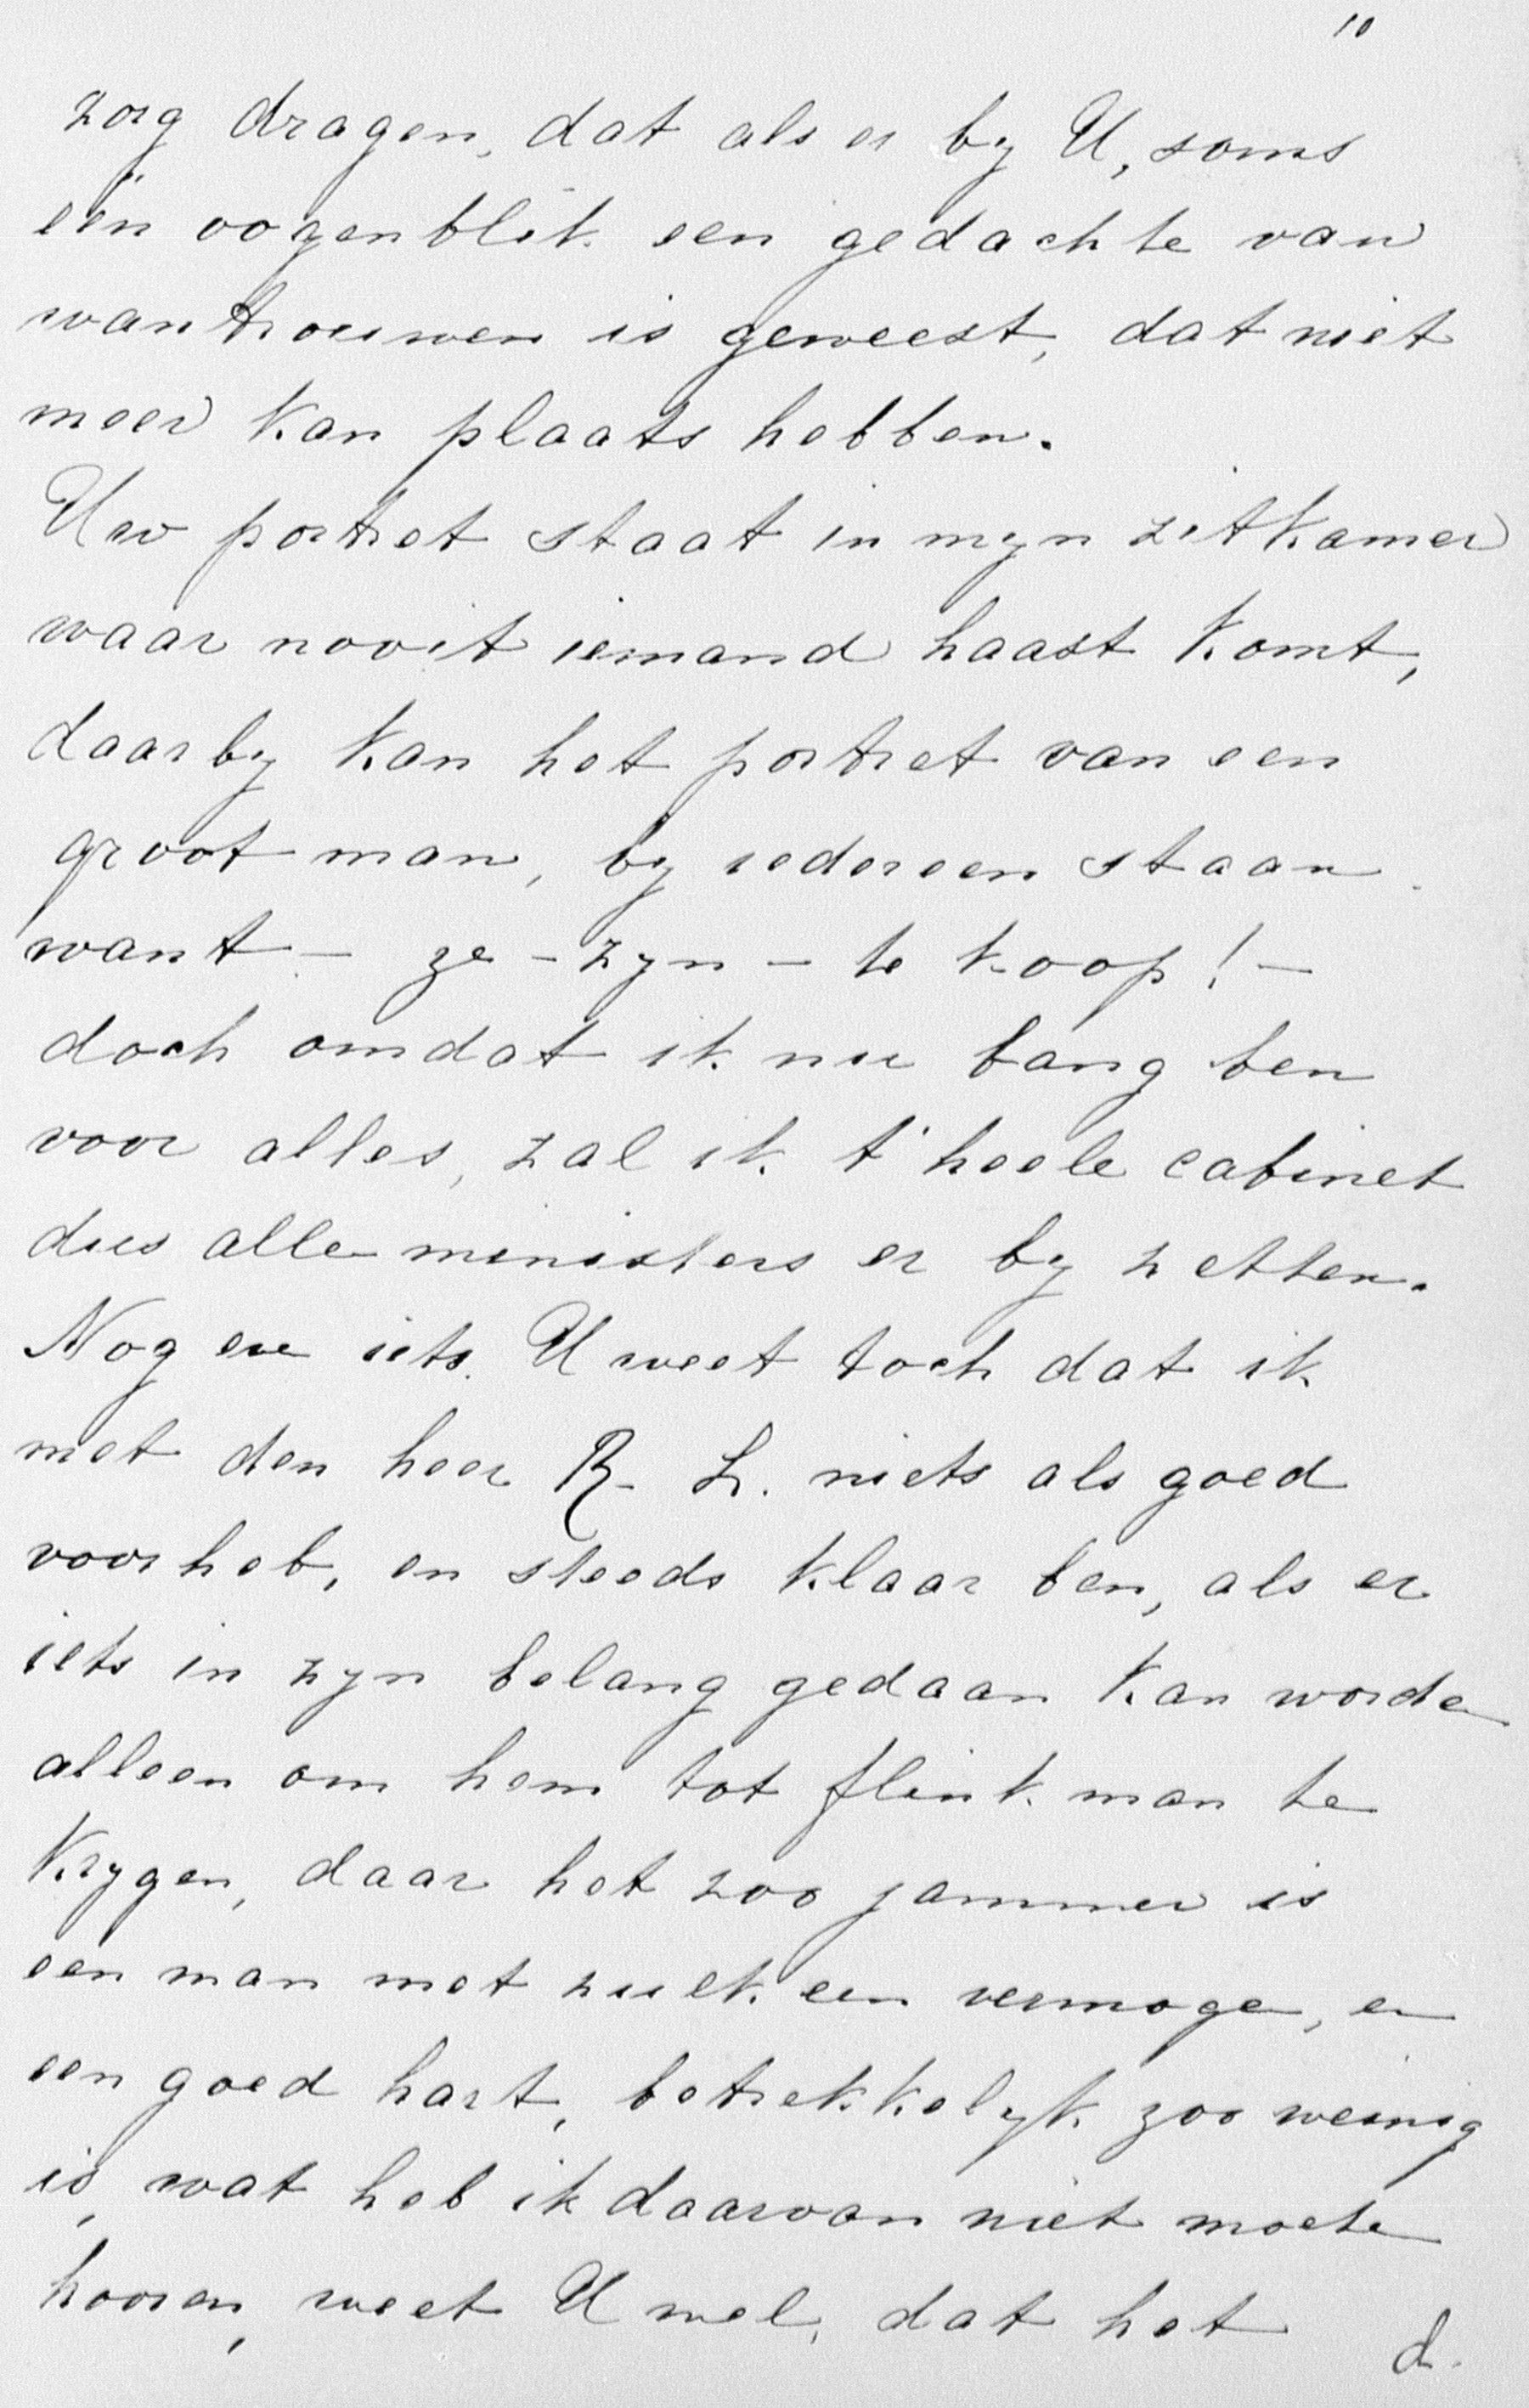 10
zorg dragen, dat als er by U, soms
één oogenblik een gedachte van
wantrouwen is geweest, dat niet
meer kan plaats hebben.
Uw portret staat in myn zitkamer
waar nooit iemand haast komt,
daarby kan het portret van een
groot man, by iedereen staan
want - ze - zyn - te koop! -
doch omdat ik nu bang ben
voor alles, zal ik t' heele cabinet
dus alle ministers er by zetten.
Nog een iets. U weet toch dat ik
met den heer R. L. niets als goed
voorheb, en steeds klaar ben, als er
iets in zyn belang gedaan kan worden
alleen om hem tot flink man te
krygen, daar het zoo jammer is
een man met zulk een vermogen, en
een goed hart, betrekkelyk zoo weinig
is, wat heb ik daarvan niet moeten
hooren, weet U wel, dat het
d.